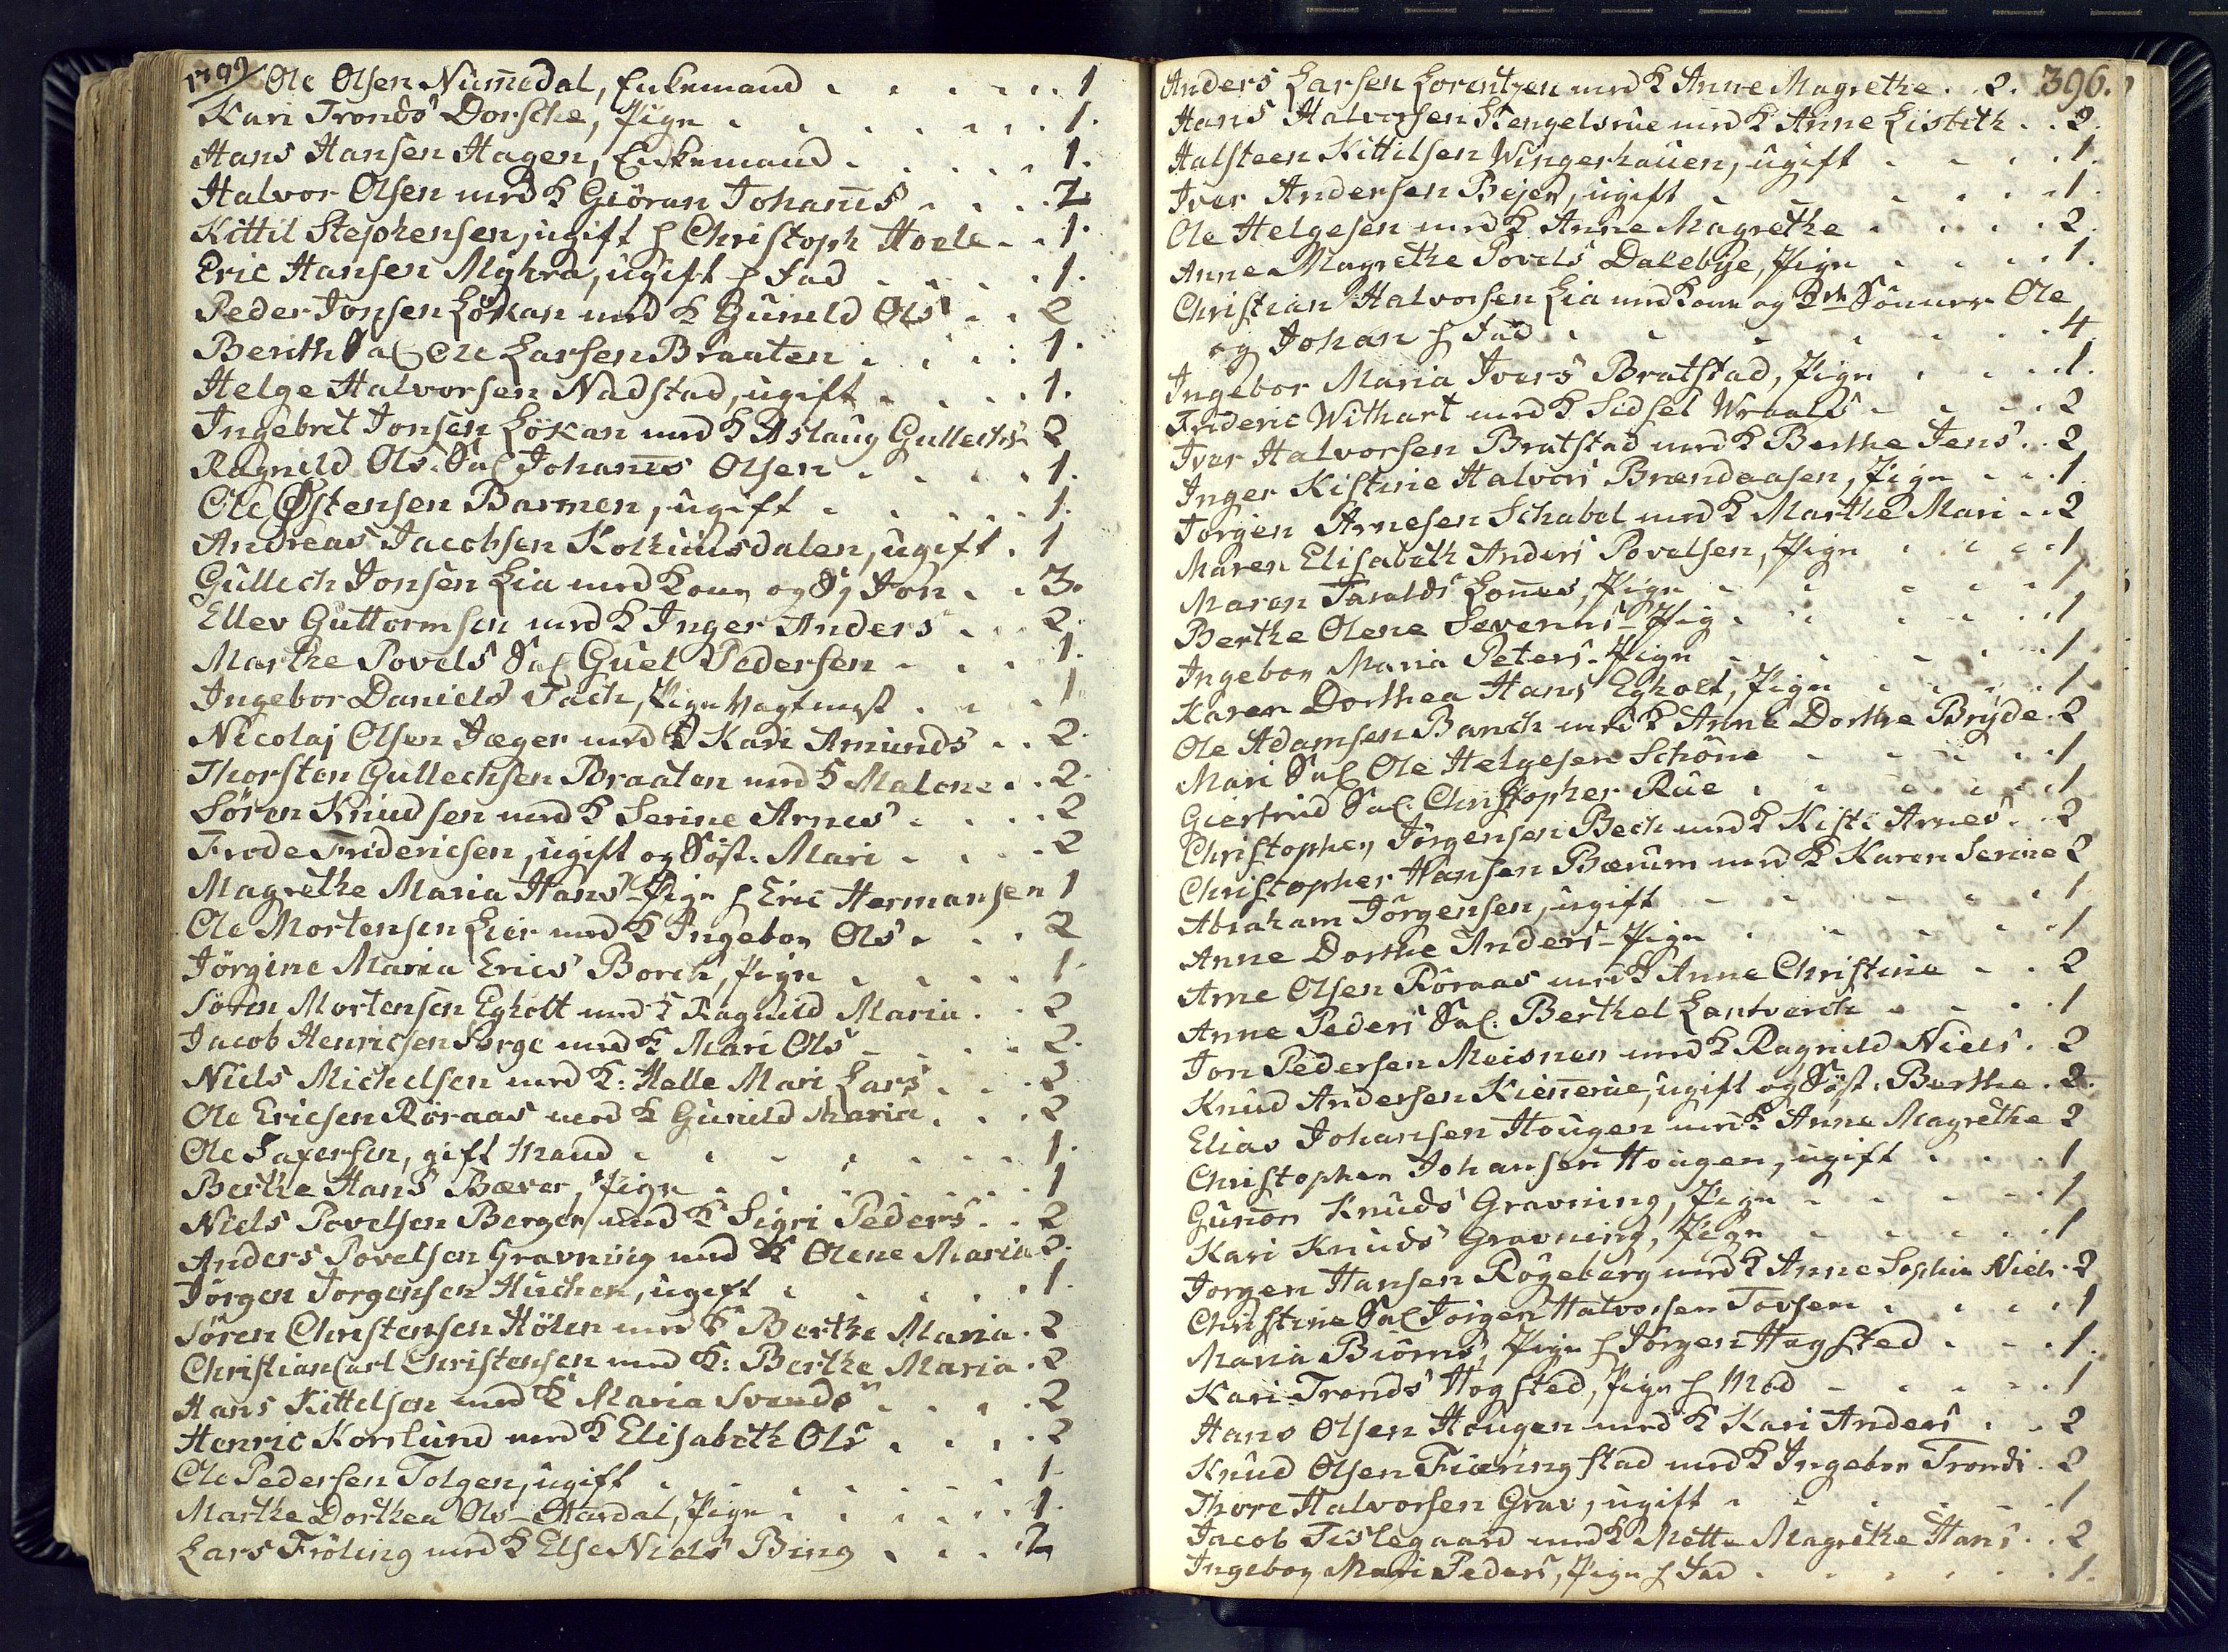 1799
Ole Olsen Numedal, Enkemand . . . . . . 1
Kari Tronds Dorsche, Pige . . . . . . . 1.
Hans Hansen Hagen, Enkemand . . . . . 1.
Halvor Olsen med K Giöran Johanns . . . . 2
Kittil Stephensen, ugift f Christoph Hoele . . 1.
Eric Hansen Myhra, ugift f Fad . . . . 1.
Peder Jonsen Lökan med K Gunild Ols . . 2
Berith Sal Ole Larsen Braaten . . . . 1.
Helge Halvorsen Nadstad, ugift . . . . 1.
Ingebret Jonsen Lökan med K Aslaug Gullechs 2
Ragnild Ols. Sal Johannes Olsen . . . . 1.
Ole Østensen Barmen, ugift . . . . . 1.
Andreas Jacobsen Kolkinsdalen, ugift . 1
Gullech Jonsen Lia med Kone og Sön Jon . . 3.
Ellev Guttormsen med K Inger Anders . . 2.
Marthe Povels Sal Guel Pedersen . . . 1.
Ingebor Daniels Pach, Pige Vagtmest . . . 1
Nicolaj Olsen Jæger med K Kari Amunds . . 2.
Thorsten Gullechsen Braaten med K Malene . . 2.
Sören Knudsen med K Serine Arnes . . . . 2
Frode Fridericsen, ugift og Söst. Mari . . . . 2
Magrethe Maria Hans - Pige f Eric Hermansen 1
Ole Mortensen Lier med K Ingebor Ols . . . 2
Jörgine Maria Erics Borch, Pige . . . . 1.
Sören Mortensen Egholt med K Ragnild Maria . . 2
Jacob Henricsen Sorge med K Mari Ols . . . . 2.
Niels Michelsen med K: Helle Mari Lars . . . 2
Ole Ericsen Röraas med K Gunild Maria . . . 2
Ole Faxersen, gift Mand . . . . . . . 1.
Berthe Hans Bæver, Pige . . . . . . 1
Niels Povelsen Bergen med K Sigri Peders . . 2
Anders Povelsen Gravning med K Olene Maria 2.
Jörgen Jorgensen Huchen, ugift . . . . . 1.
Sören Christensen Hölen med K Berthe Maria . 2
Christian Carl Christensen med K: Berthe Maria . 2
Hans Kittelsen med K Maria Svends . . . . 2
Henric Korslund med K Elisabeth Ols . . . . 2
Ole Pedersen Tolgen, ugift . . . . . . 1.
Marthe Dorthea Ols - Aardal, Pige . . . . . 1.
Lars Fröling med K Else Niels Bing . . . 2
396.
Anders Larsen Lorentzen med K Anne Magrethe . . 2.
Hans Halvorsen Stengelsrue med K Anne Lisbeth . . 2.
Halsteen Kittilsen Wingerhauen, ugift . . . . 1.
Iver Andersen Bejer, ugift . . . . . . 1.
Ole Helgesen med K Anne Magrethe . . . . 2.
Anne Magrethe Povels Dalebye, Pige . . . . 1.
Christian Halvorsen Lia med Kone og 2de Sönner Ole
og Johan f Fad . . . . . . . 4.
Ingebor Maria Ivers Bratstad, Pige . . . 1.
Frideric Withart med K Sidsel Wraals . . . 2
Iver Halvorsen Bratstad med K Berthe Jens . . 2
Inger Kistine Halvors Brændaasen, Pige . . . 1
Jorgen Arnesen Schabel med K Marthe Mari . . 2
Maren Elisabeth Anders Povelsen, Pige . . . . 1
Maren Taralds Lonnes, Pige . . . . . 1
Berthe Olene Severins - Pig . . . . . 1
Ingebor Maria Peters - Pige . . . . . 1
Karen Dorthea Hans Egholt, Pige . . . . 1
Ole Adamsen Banch med K Anne Dorthe Bryde . 2
Mari Sal Ole Helgesen Schöne . . . . . 1
Giertrud Sal. Christopher Rue . . . . . 1
Christopher Jörgensen Bech med K Kisti Arnes . . 2
Christopher Hansen Bærum med K Karen Serine 2
Abraham Jörgensen, ugift . . . . . . 1
Anne Dorthe Anders - Pige . . . . . 1
Arne Olsen Röraas med K Anne Christine . . 2
Anne Peders Sal. Berthel Lantverch . . . . 1
Jon Pedersen Meisner med K Ragnild Niels . 2
Knud Andersen Kiennerue, ugift og Söst. Berthe . 2.
Elias Johansen Hougen med K Anne Magrethe 2
Christopher Johansen Hougen, ugift . . . 1
Gunor Knuds Gravning, Pige . . . . . 1
Kari Knuds Gravning, Pige . . . . . 1
Jorgen Hansen Rögeberg med K Anne Sophie Niels . 2
Christine Sal Jorgen Halvorsen Tovsen . . . . 1
Maria Biörns, Pige f Jörgen Hagsted . . . 1.
Kari Tronds Hogsted, Pige f Mod . . . . . 1
Hans Olsen Hougen med K Kari Anders . . 2
Knud Olsen Fiæringstad med K Ingebor Tronds . 2
Thore Halvorsen Grav, ugift . . . . . 1
Jacob Tislegaard med K Mette Magrethe Hans . . 2
Ingebor Mari Peders, Pige f Fad . . . . . . 1.